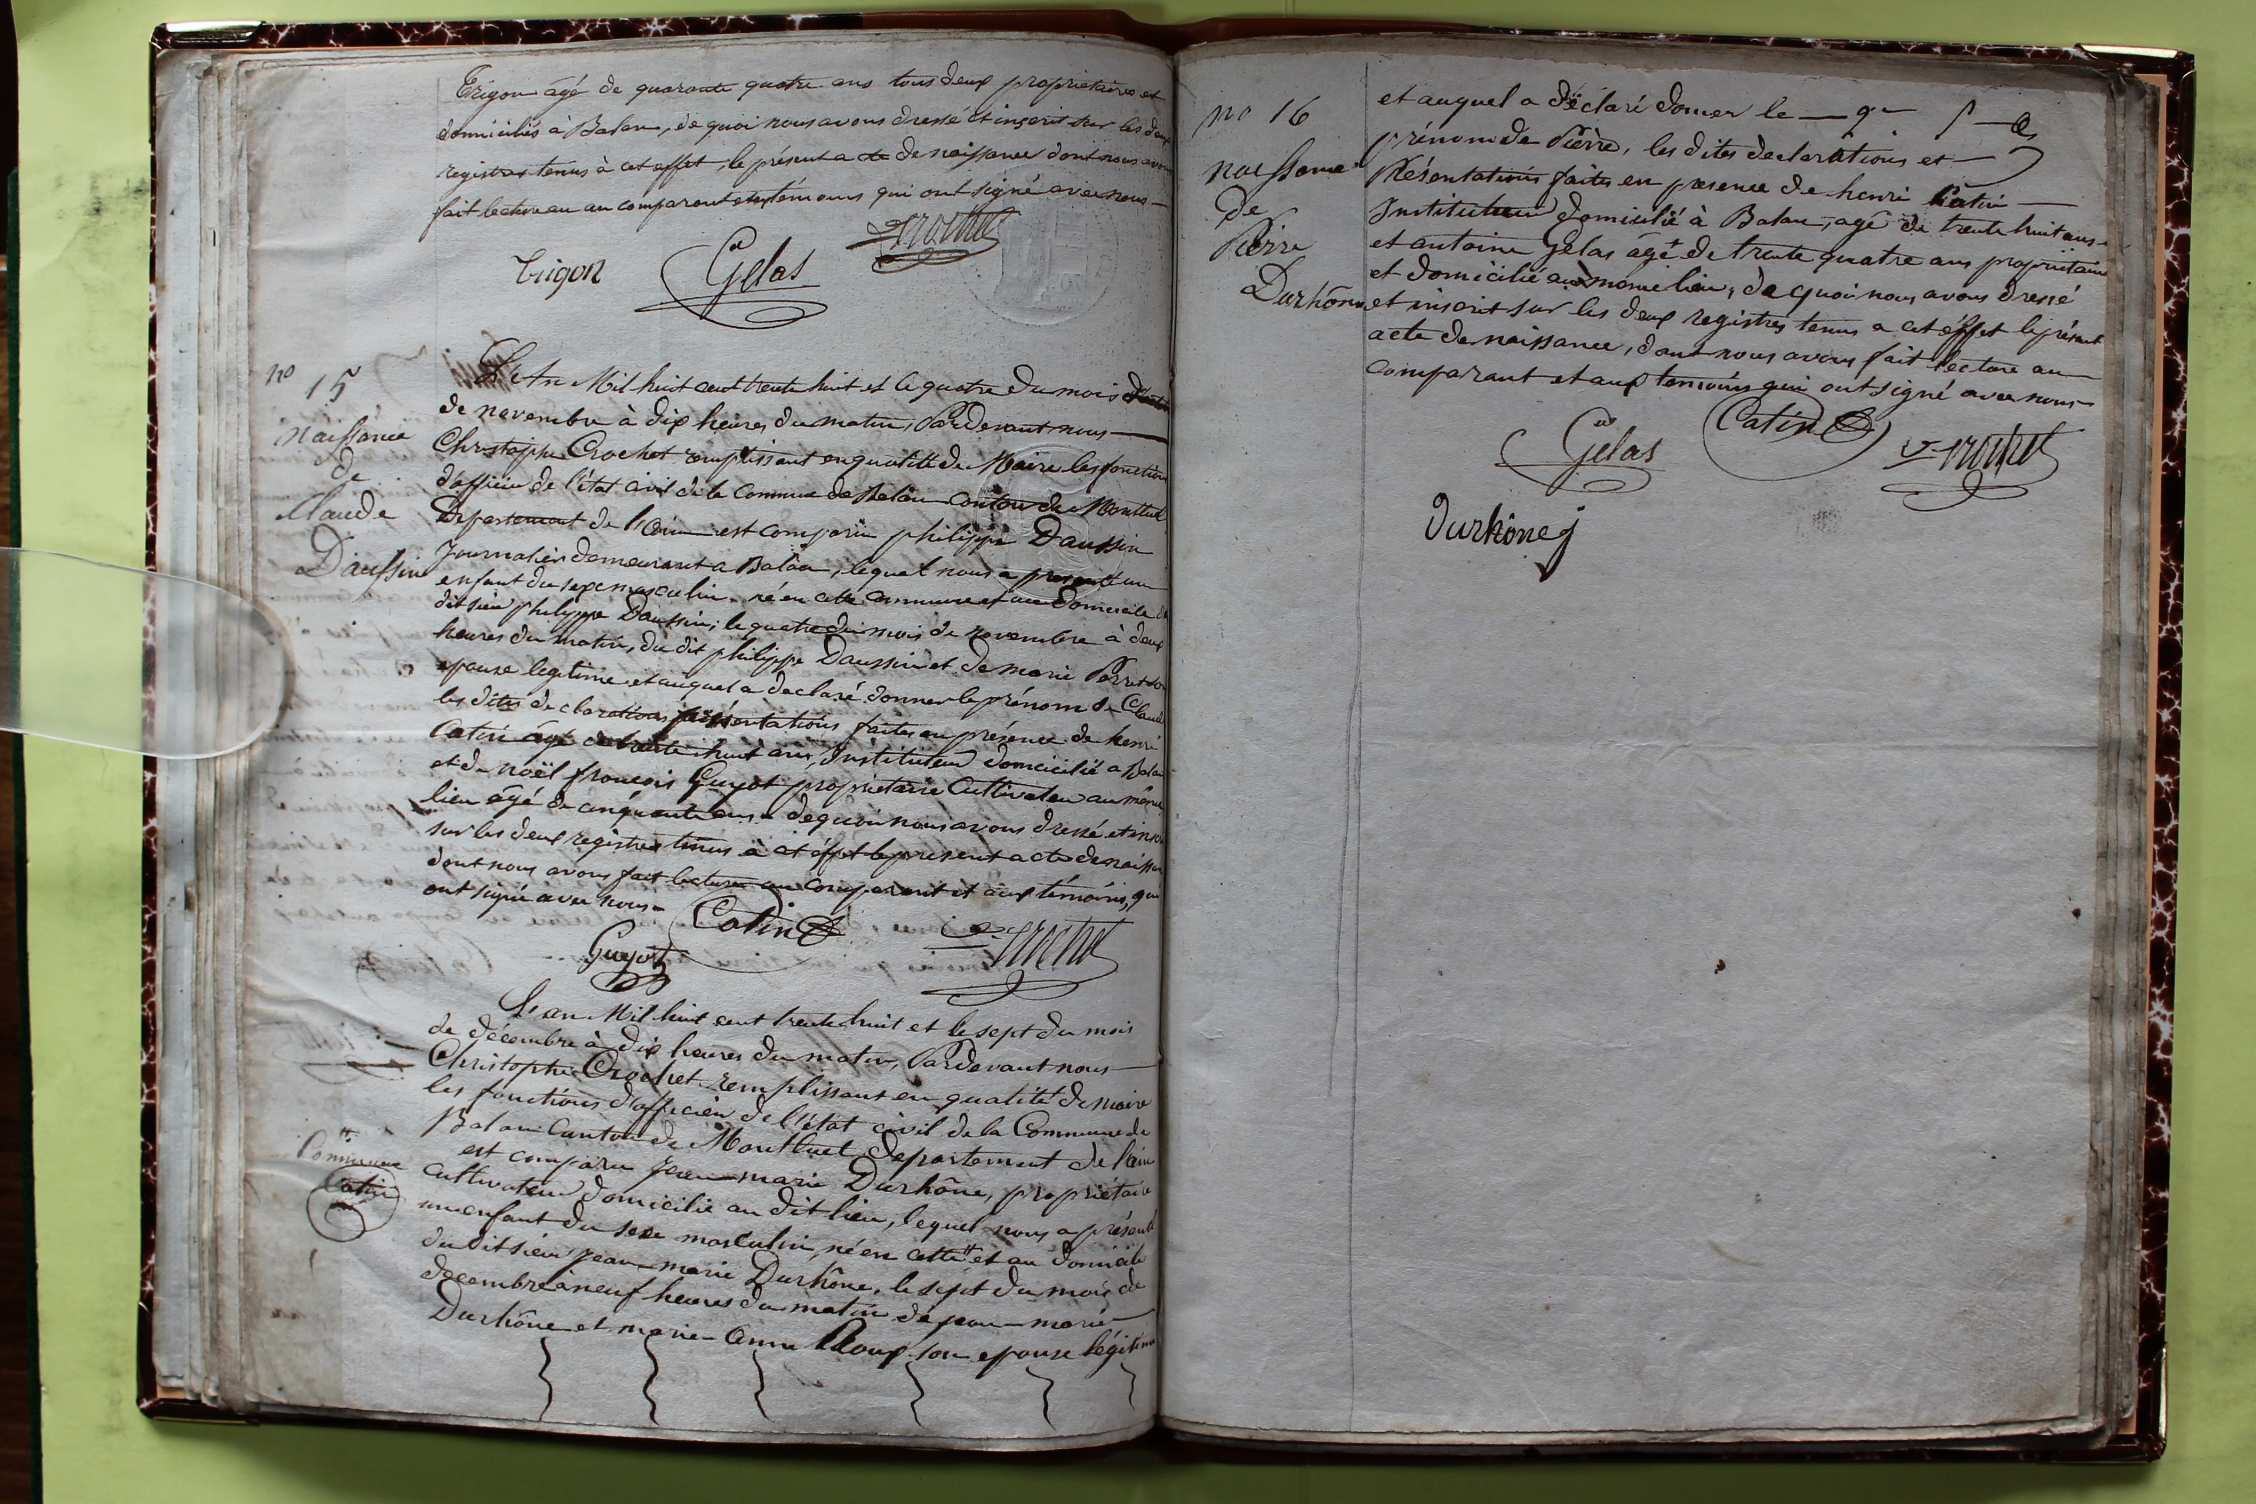 Trigon âgé de quarante quatre ans tous deux propriétaires et
domiciliés à Balan, de quoi nous avons dressé et inscrit sur les deux
registres tenus à cet effet, le présent acte de naissance dont nous avons
fait lecture au comparant et témoins qui ont signé avec nous
Trigon Gelas Crochet
no 15
Naissance
de
Claude
Daussin
L'An Mil huit cent trente huit et le quatre du mois
de novembre à dix heures du matin, Pardevant nous
Christophe Crochet remplissant en qualité de Maire les fonctions
d'officier de l'état civil de la commune de Balan canton de Montluel
Département de l'ain est comparu philippe Daussin
Journalier demeurant a Balan, lequel nous a presenté un
enfant du sexe masculin né en cette commune et au domicile du
dit sieur philippe Daussin; le quatre du mois de novembre à deux
heures du matin, du dit philippe Daussin et de marie Perret son
epouse legitime et auquel a declaré donner le prénom de Claude
les dites declarations présentations faites en présence de henri
Catin âgé de trente huit ans, Instituteur domicilié a Balan
et de noël francois Guyot propriétaire Cultivateur au même
lieu âgé de cinquante ans de quoi nous avons dressé et inscrit
sur les deux registres tenus à cet effet le present acte de naissance
dont nous avons fait lecture au comparant et aux témoins, qui
ont signé avec nous
Catin
Guyot Crochet
L'an Mil huit cent trente huit et le sept du mois
de décembre à dix heures du matin, Pardevant nous
Christophe Crochet remplissant en qualité de maire
les fonctions d'officier de l'état civil de la Commune de
Balan Canton de Montluel, departement de l'ain
est comparu jean marie Durhône, propriétaire
Cultivateur domicilié au dit lieu, lequel nous a présenté
un enfant du sexe masculin, né en cette # et au domicile
du dit sieur jean marie Durhône, le sept du mois de
decembre à neuf heures du matin de jean marie
Durhône et marie anne Roux son epouse légitime
# Commune
Catin
no 16
naissance
de
Pierre
Durhône
et auquel a déclaré donner le
prénom de Pierre, les dites declarations et
Présentations faites en presence de henri Catin
Instituteur domicilié à Balan, agé de trente huit ans
et antoine Gelas âgé de trente quatre ans propriétaire
et domicilié au même lieu, de quoi nous avons dressé
et inscrit sur les deux registres tenus a cet éffet le présent
acte de naissance, dont nous avons fait lecture au
comparant et aux temoins qui ont signé avec nous
Gelas Catin Crochet
Durhône j